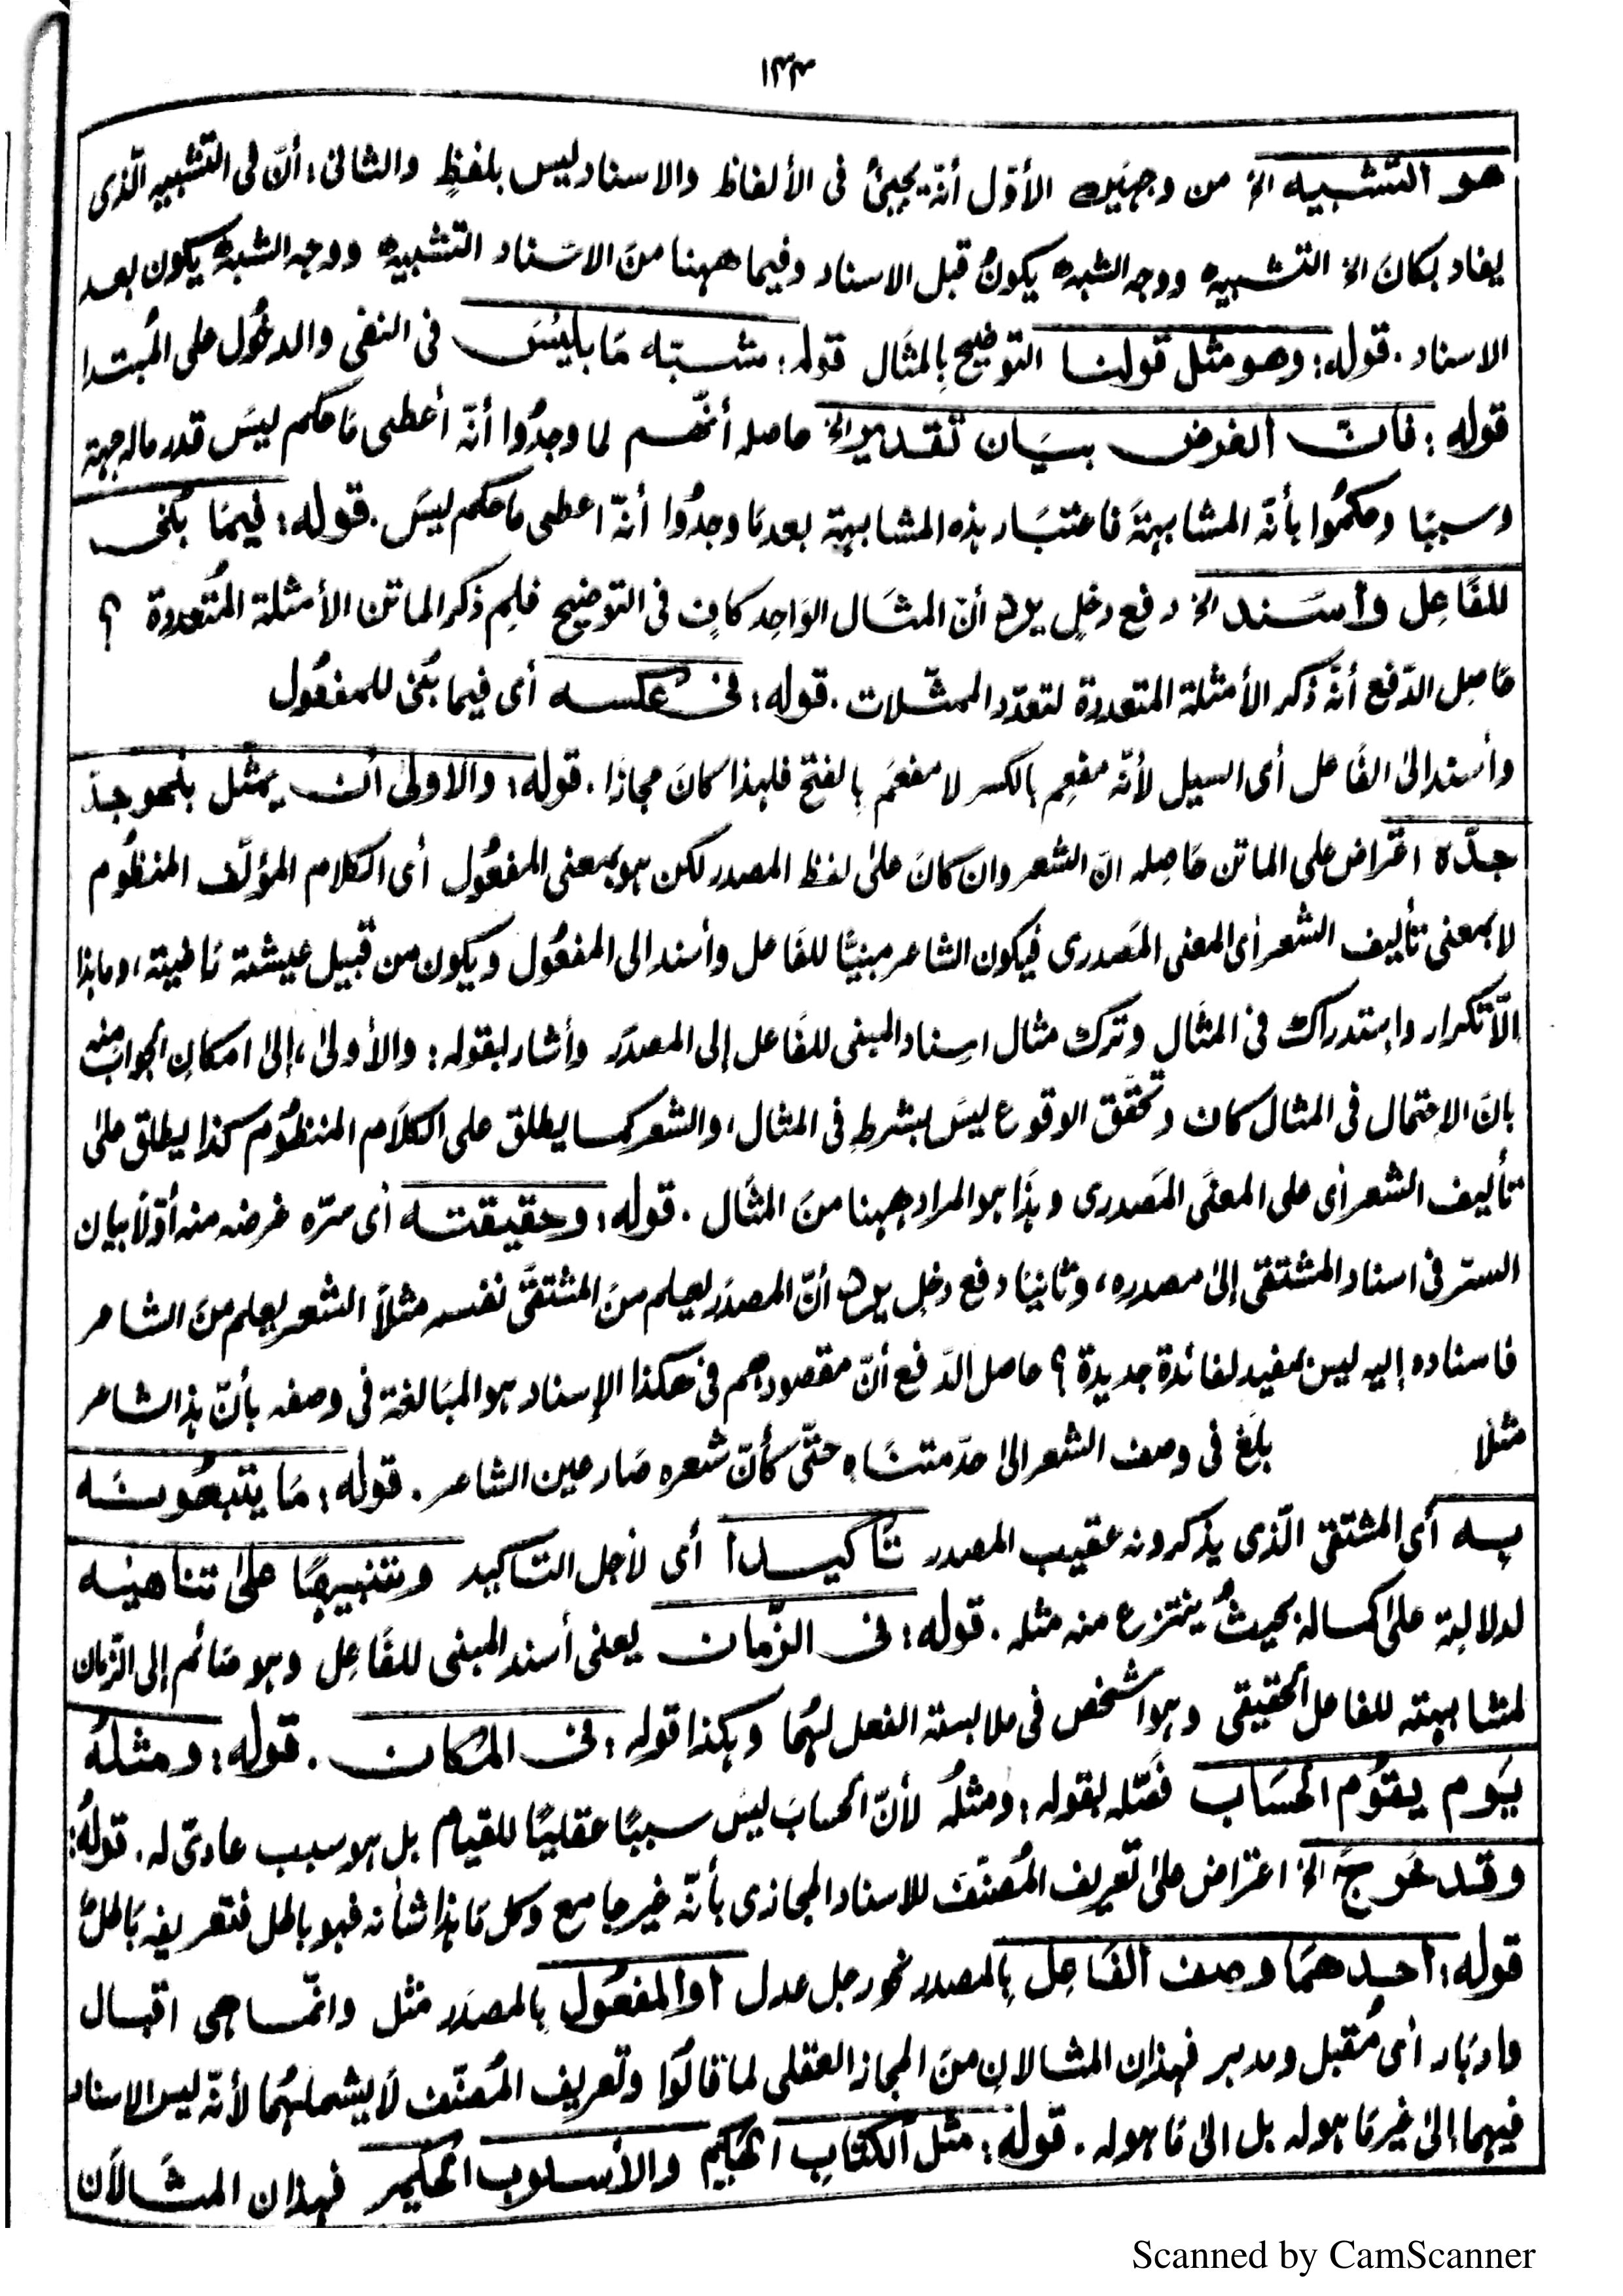 ١٣٣
هو التشبيه الخ من وجهين الأوّل أنّه يجيئُ فى الألفاظ والاسناد ليس بلفظٍ والثانى: أنّ فى التشبيه الّذى
يفاد بكانَ الخ التشبيه ووجه الشبه يكونُ قبل الاسناد وفيما ههنا منَ الاسناد التشبيه ووجه الشبه يكون بعد
الاسناد. قوله: وهو مثل قولنا التوضيح بِالمثَال قوله: شبّه مَا بليسَ فى النفى والدخُول على المُبتدا
قوله: فانّ الغرض بيَان تقدير الخ حاصله أنّهم لما وجدُوا أنّه أعطى مَا حكم ليسَ قدر ماله جهة
وسببًا وحكمُوا بأنّه المشابهةَ فاعتبَار هذه المشابهة بعد مَا وجدُوا أنّه اعطى ما حكم ليسَ. قوله: فيمَا بُنى
للفَاعِل وأسند الخ دفع دخلٍ يرد أنّ المثَال الوَاحِد كافٍ فى التوضيح فلِم ذكر الماتن الأمثلة المُتعددة ؟
حَاصِل الدّفع أنّه ذكر الأمثلة المتعددة لتعدّد الممثّلات. قوله: فى عكسه أى فيما بُنى للمفعُول
وأسند الىٰ الفَاعل أى السيل لأنّه مفعِم بالكسر لا مفعَم بِالفتح فلهذا كانَ مجازًا. قوله: والاولىٰ أن يمثّل بنحو جدّ
جدّه اعتراض على الماتن حَاصِله انّ الشعر وان كانَ علىٰ لفظ المصدر لكن هو بمعنى المفعُول أى الكلام المؤلّف المنظُوم
لا بمعنى تأليف الشعر أى المعنى المَصدرى فيكون الشاعر مبنيًّا للفَاعل وأسند الى المفعُول ويكون من قبيل عيشة رَاضية، وما هذا
الّا تكرار واستدراك فى المثال وترك مثال اسناد المبنى للفَاعل إلى المصدَر وأشار بقوله: والأولىٰ، إلىٰ امكان الجواب منه
بانّ الاحتمال فى المثال كاف وتحقّق الوقوع ليسَ بشرطٍ فى المثال، والشعر كما يطلق على الكلَام المنظُوم كذا يطلق علىٰ
تأليف الشعر أى على المعنَى المَصدرى وهذَا هو المراد ههنا منَ المثَال. قوله: وحقيقته أى سرّه غرضه منه أوّلاً بيان
السرّ فى اسناد المشتقّ إلىٰ مصدره، وثانيًا دفع دخلٍ يرد أنّ المصدَر يعلم منَ المشتقّ نفسه مثلاً الشعر يعلم منَ الشاعر
فاسناده إليه ليس بمفيد لفائدة جديدة ؟ حاصل الدّفع أنّ مقصودهم فى هكذا الإسناد هو المبَالغة فى وصفه بأنّ هذا الشاعر
مثلا بلغ فى وصف الشعر الىٰ حدّ متنَاهٍ حتّى كأنّ شعره صَار عين الشاعر. قوله: مَا يتبعُونَه
به أى المشتقّ الّذى يذكرونه عقيب المصدر تَاكيدا أى لأجل التاكيد وتنبيهًا علىٰ تناهيه
لدلالته علىٰ كماله بحيثُ ينتزع منه مثله. قوله: فى الزّمان يعنى أسند المبنى للفَاعِل وهو صَائم إلى الزّمان
لمشابهته للفاعل الحقيقى وهو الشخص فى ملابسة الفعل لهُما وهكذا قوله: فى المكان. قوله: ومثلهُ
يَوم يقُوم الحسَاب فصّله بقوله: ومثلُه لأنّ الحسابَ ليسَ سببًا عقليًا للقيام بل هو سبب عادىّ له. قولهُ:
وقد خرجَ الخ اعتراض علىٰ تعريف المُصنّف للاسناد المجازى بأنّه غير جامع وكل مَا هذا شأنه فهو باطل فتعريفه بَاطلٌ
قوله: أحدهمَا وصف الفَاعِل بِالمصدر نحو رجل عدل أو المفعُول بِالمصدَر مثل وانّما هى اقبال
وادبَار أى مُقبل ومدبر فهذان المثالان منَ المجاز العقلى لما قالُوا وتعريف المُصنّف لَا يشملهُما لأنّه ليس الاسناد
فيهما إلىٰ غير مَا هو له بل الىٰ مَا هو له. قوله: مثل الكتَابِ الحكيم والأسلوب الحكيم فهذان المثَالاَن
Scanned by CamScanner